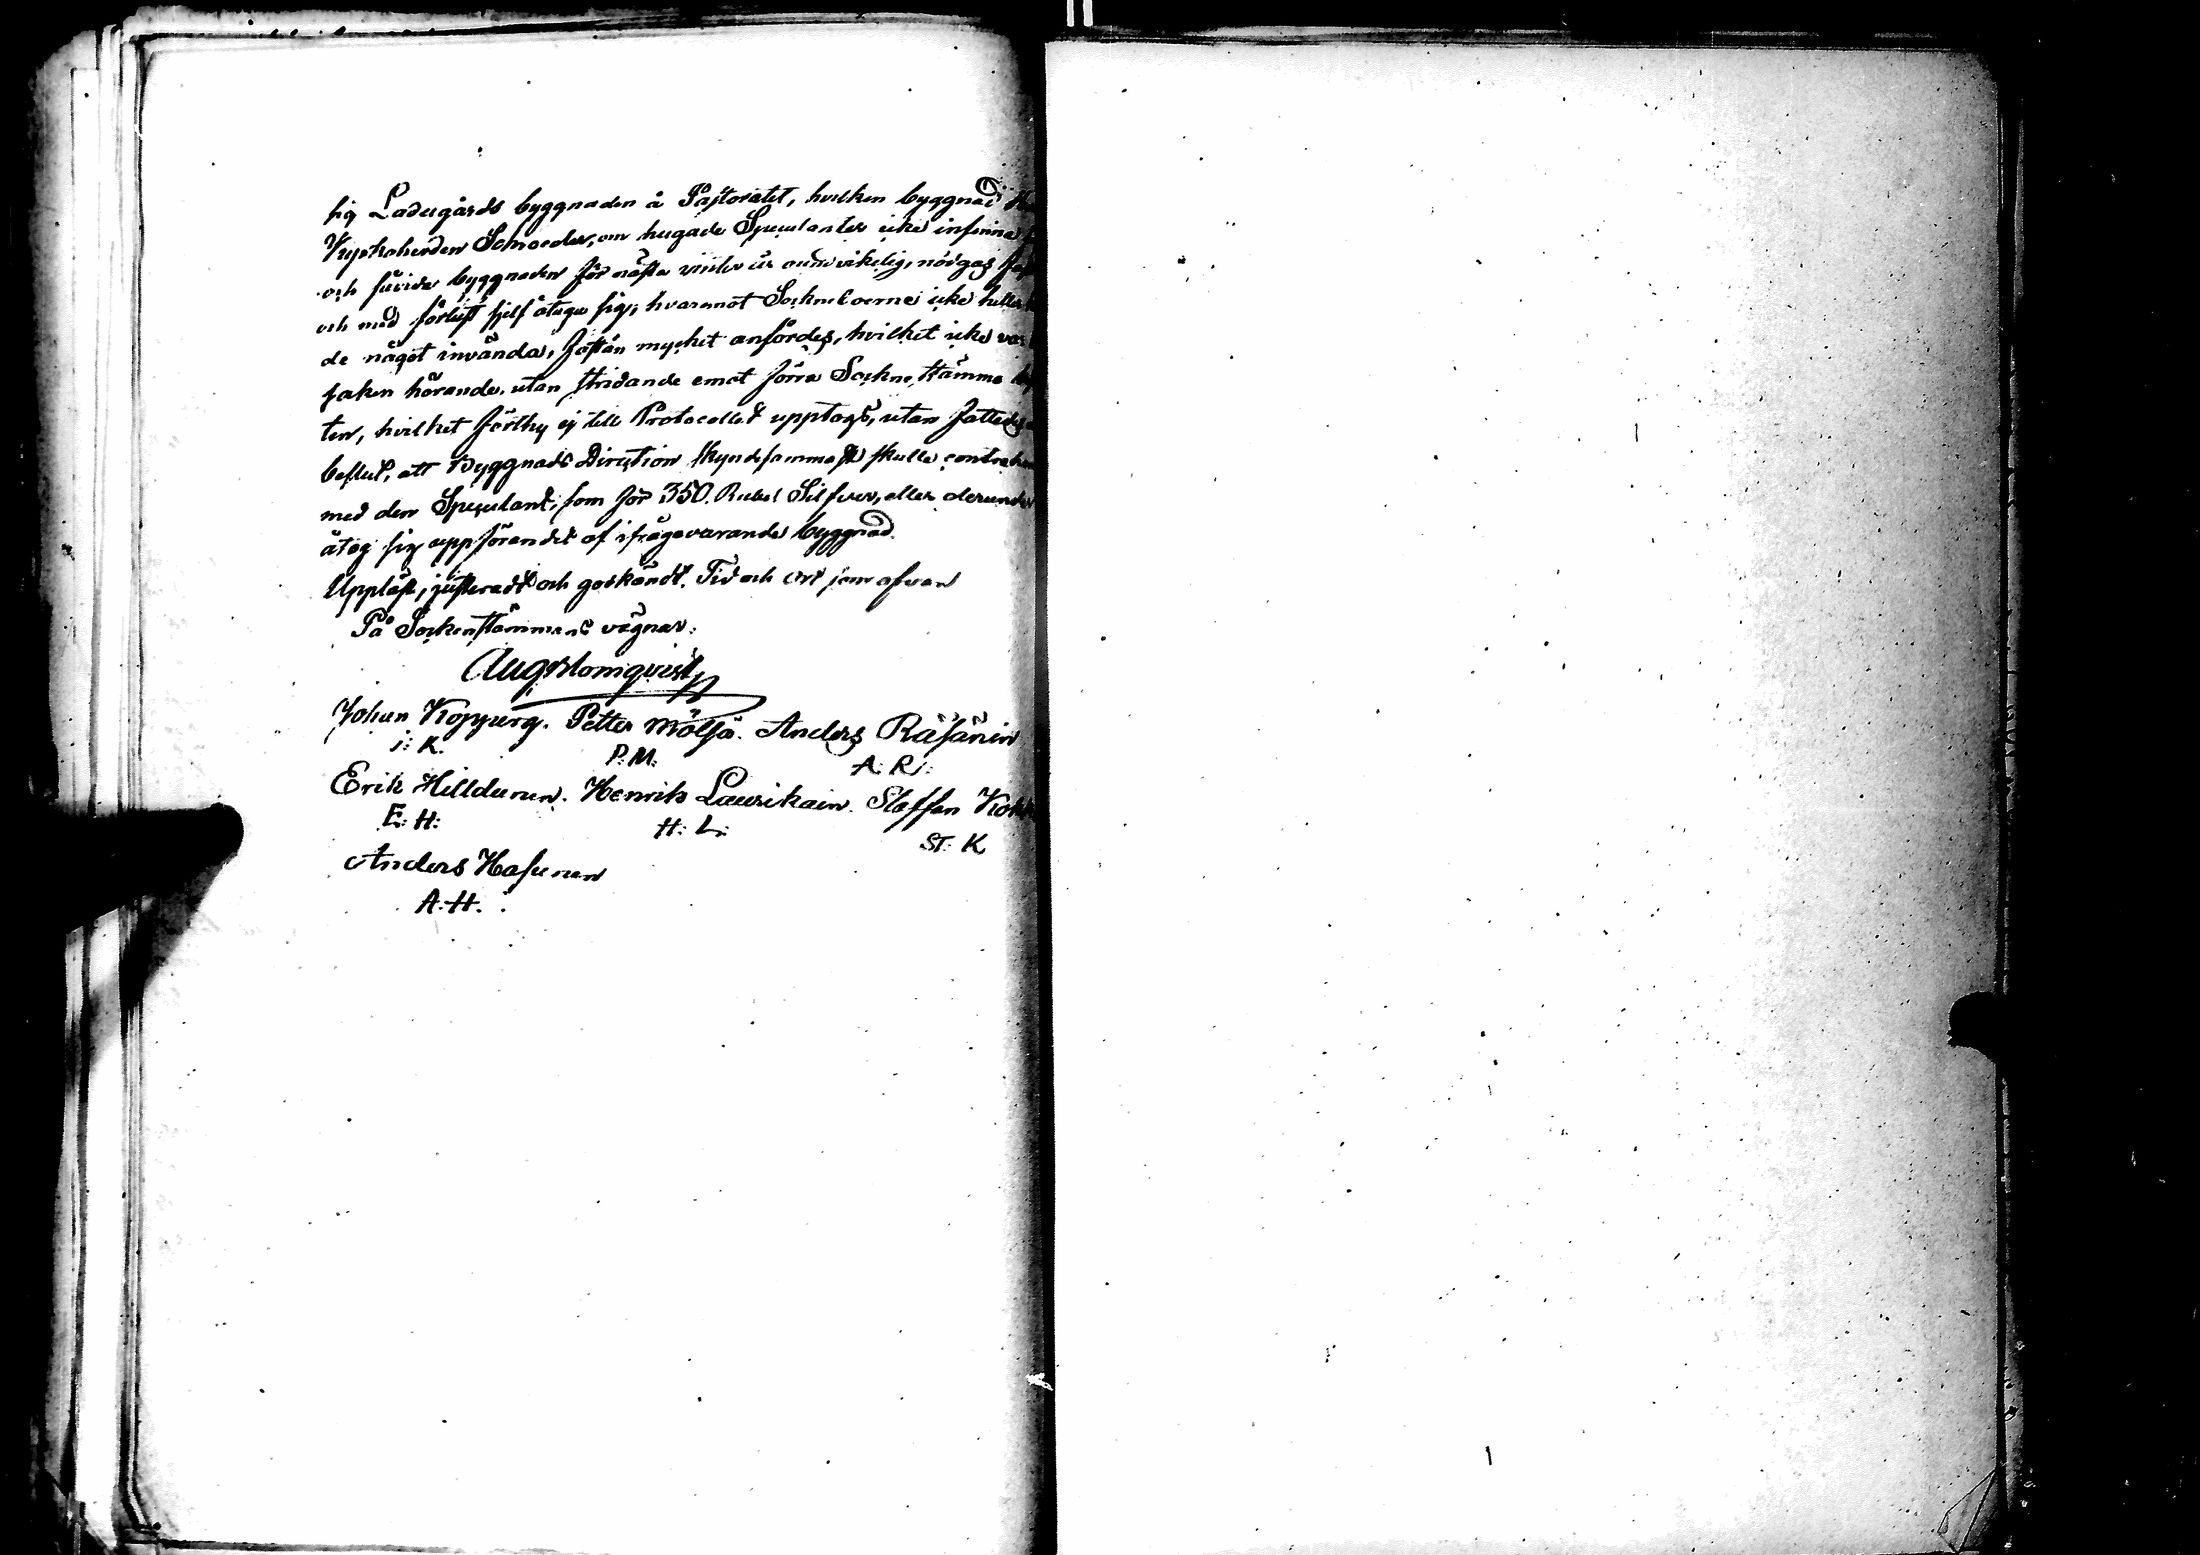 sig Ladugårds byggnaden å Pastoratet, hvilken byggnad
Kyrkoherden Schroeder, om hugade Speculanter icke infinna
och såvida byggnaden för nästa vinter är oundvikelig, nödgas
och med förlust sjelf åtaga sig; hvaremot Sockneboerne icke heller
de något invända, fastän mycket anfördes, hvilket icke var
saken hörande, utan stridande emot förra Sockne Stämmo
ten, hvilket förthy ej till Protocollet upptogs, utan fattades
beslut, att Byggnads Direction skyndsammast skulle contrahera
med den Speculant, som för 350. Rubel Silfver, eller derunder
åtog sig uppförandet af ifrågavarande byggnad.
Uppläst, justeradt och godkändt. Tid och ort som ofvan
På Sockenstämmans vägnar:
Aug Blomqvist
Johan Kopperg. Petter Mölsä. Anders Räsänin
j: K. P: M: A: R:
Erik Hilldunen. Henrik Laurikain. Staffan
E: H: H: L: ST: K
Anders Hasunen
A: H.